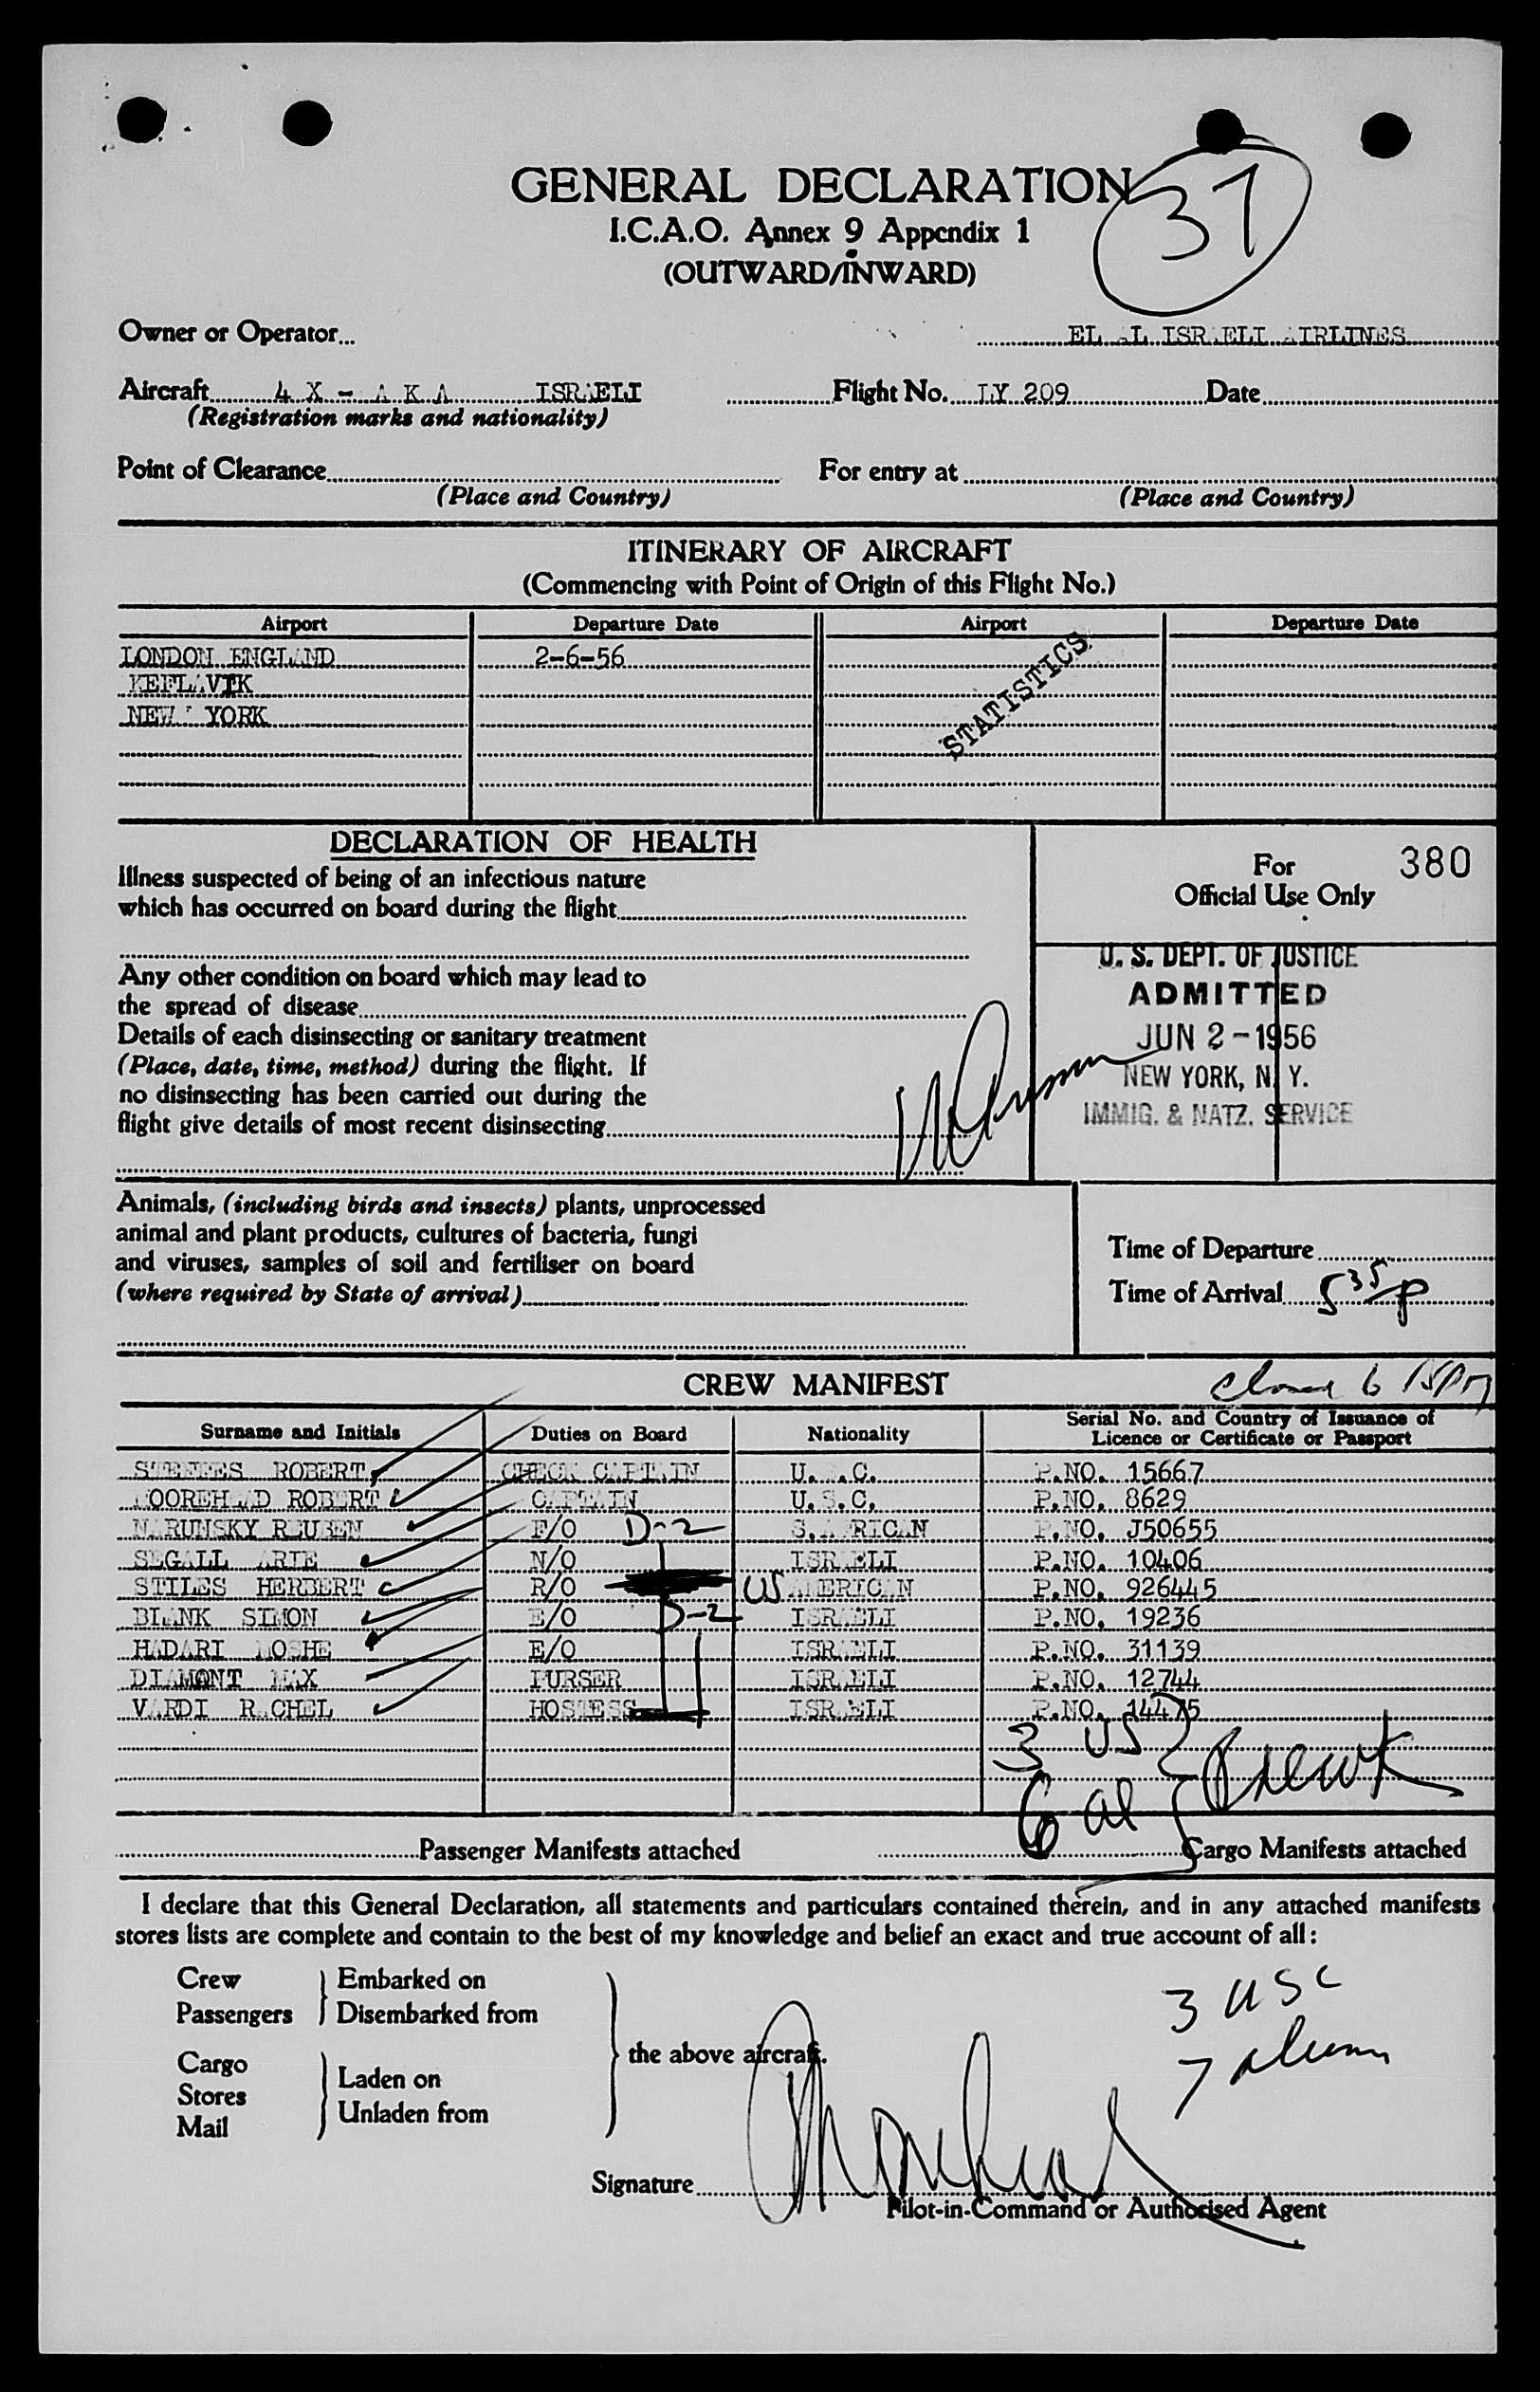 37
GENERAL DECLARATION
I.C.A.O. Annex 9 Appendix 1
(OUTWARD/INWARD)
Owner or Operator... EL AL ISRAELI AIRLINES
Aircraft 4 X - A K A ISRAELI Flight No. LY 209 Date
(Registration marks and nationality)
Point of Clearance For entry at
(Place and Country) (Place and Country)
ITINERARY OF AIRCRAFT
(Commencing with Point of Origin of this Flight No.)
Airport Departure Date Airport Departure Date
LONDON ENGLAND 2-6-56
KEFLAVIK
NEW YORK
STATISTICS
DECLARATION OF HEALTH
Illness suspected of being of an infectious nature
which has occurred on board during the flight
Any other condition on board which may lead to
the spread of disease
Details of each disinsecting or sanitary treatment
(Place, date, time, method) during the flight. If
no disinsecting has been carried out during the
flight give details of most recent disinsecting
For 380
Official Use Only
U. S. DEPT. OF JUSTICE
ADMITTED
JUN 2 - 1956
NEW YORK, N. Y.
IMMIG. & NATZ. SERVICE
Animals, (including birds and insects) plants, unprocessed
animal and plant products, cultures of bacteria, fungi
and viruses, samples of soil and fertiliser on board
(where required by State of arrival)
Time of Departure
Time of Arrival 5 35/p
CREW MANIFEST
Surname and Initials Duties on Board Nationality Serial No. and Country of Issuance of
Licence or Certificate or Passport
ROBERT CHECK CAPTAIN U.S.C. P.NO. 15667
MOOREHEAD ROBERT CAPTAIN U.S.C. P.NO. 8629
NARUNSKY REUBEN F/O D-2 S.AFRICAN P.NO. J50655
SEGALL ARIE N/O ISRAELI P.NO. 10406
STILES HERBERT R/O US AMERICAN P.NO. 926445
BLANK SIMON E/O D-2 ISRAELI P.NO. 19236
HADARI MOSHE E/O ISRAELI P.NO. 31139
DIAMONT MAX PURSER ISRAELI P.NO. 12744
VARDI RACHEL HOSTESS ISRAELI P.NO. 14475
3 US
6 al
Passenger Manifests attached Cargo Manifests attached
I declare that this General Declaration, all statements and particulars contained therein, and in any attached manifests
stores lists are complete and contain to the best of my knowledge and belief an exact and true account of all:
Crew Embarked on
Passengers Disembarked from
the above aircraft.
Cargo
Stores Laden on
Mail Unladen from
3 USC
7 alien
Signature
Pilot-in-Command or Authorised Agent